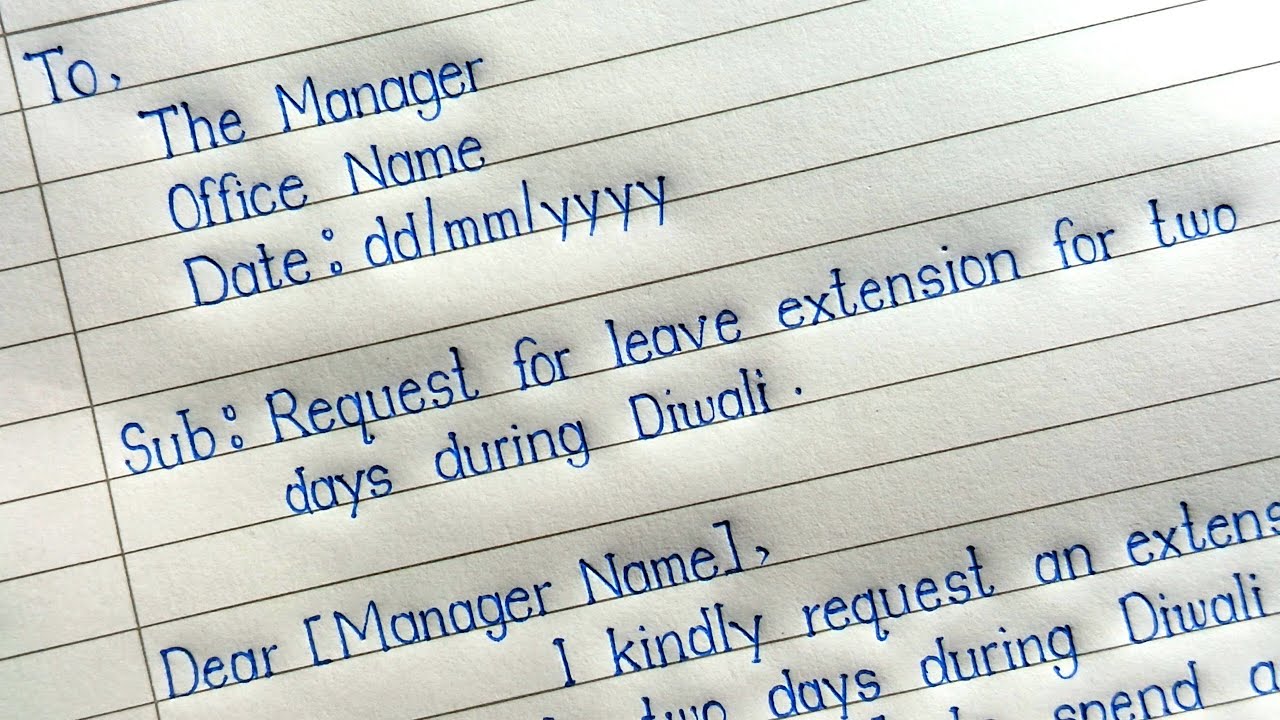 To,
The Manager
Office Name
Date: dd/mm/yyyy
Sub: Request for leave extension for two
days during Diwali.
Dear [Manager Name],
I kindly request an extens
two days during Diwali
spend a